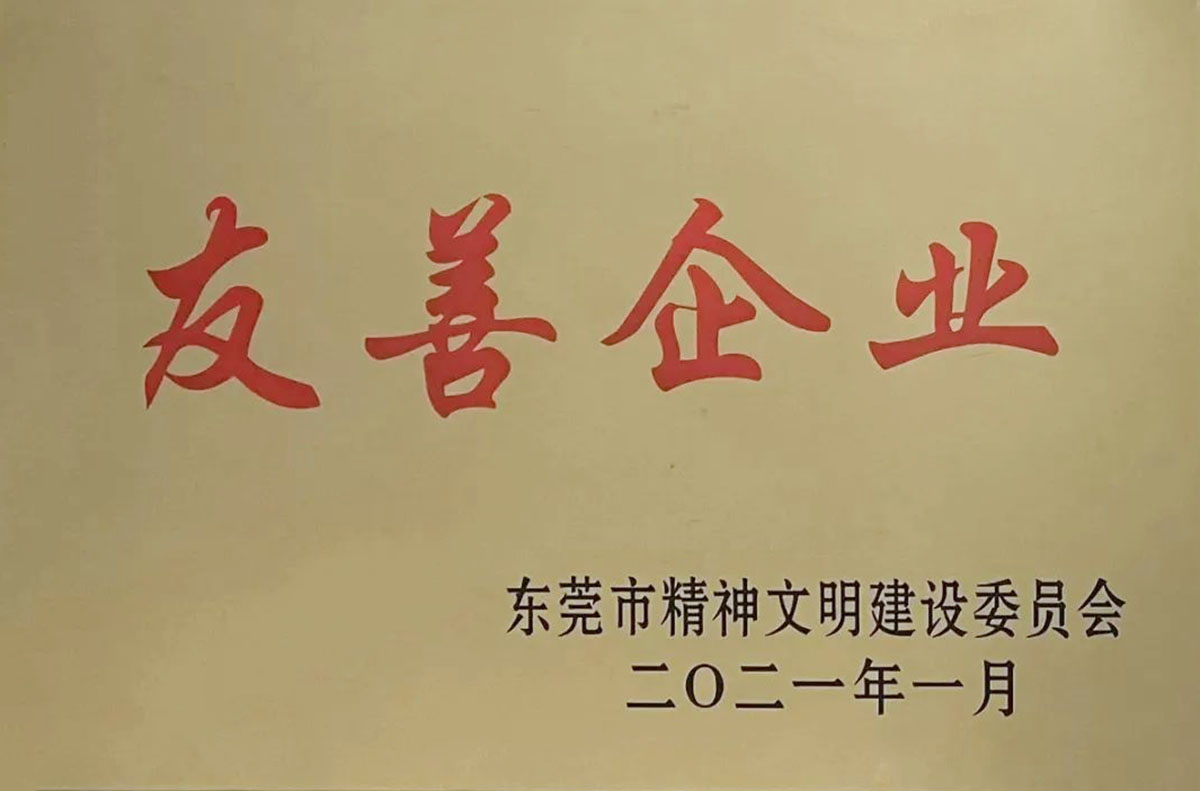 友善企业
东莞市精神文明建设委员会
二〇二一年一月